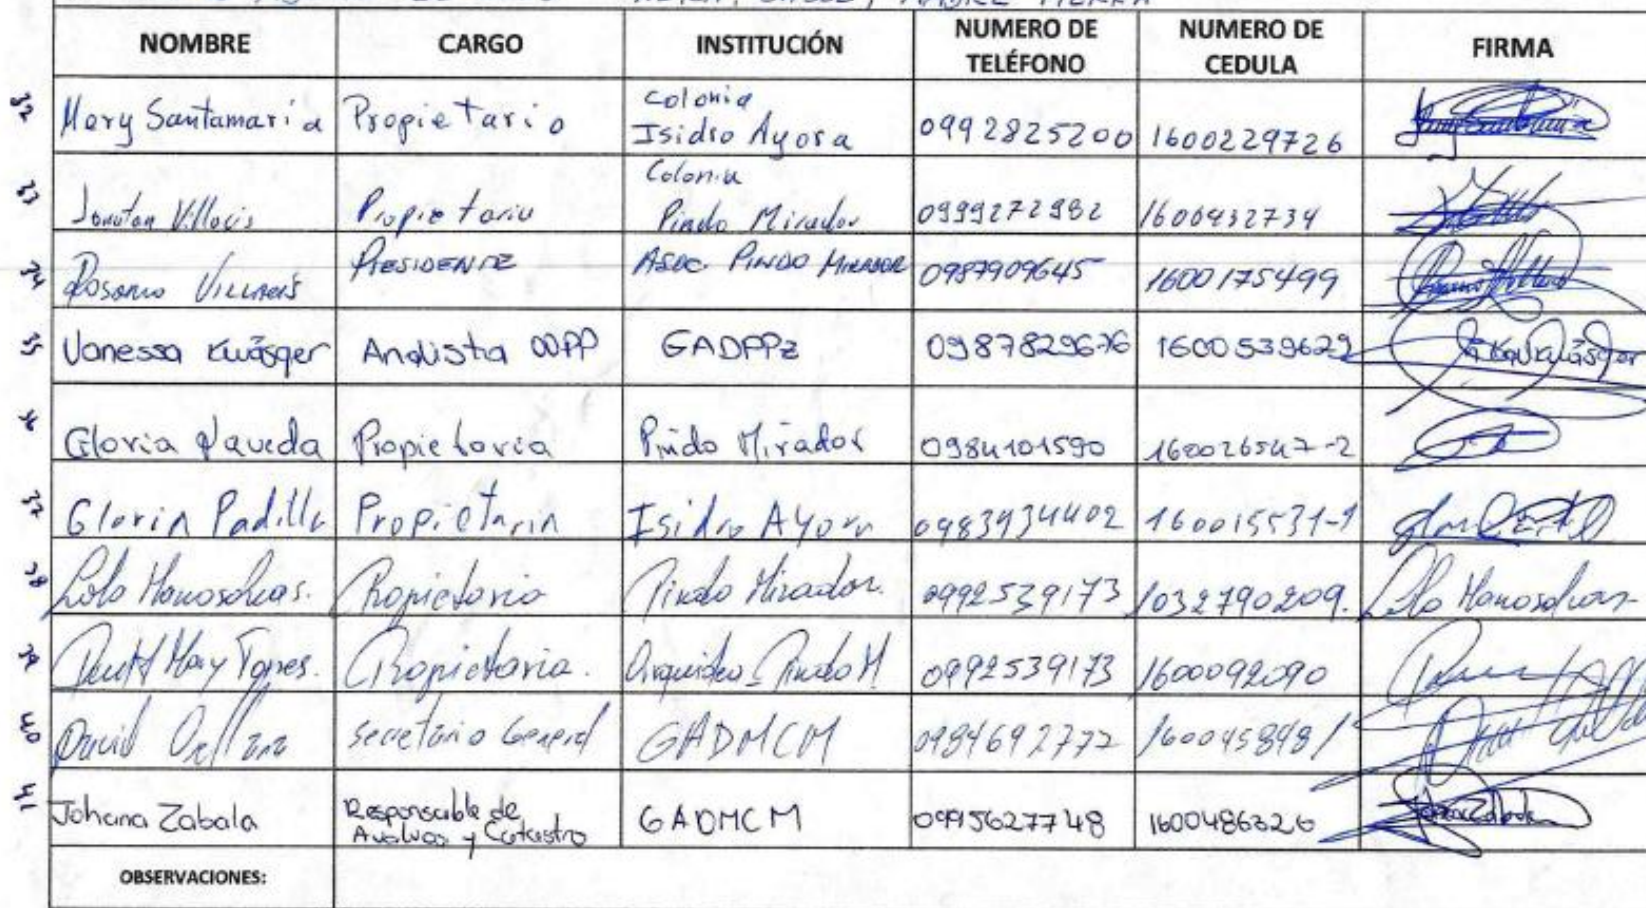 MADRE TIERRA
NOMBRE CARGO INSTITUCIÓN NUMERO DE TELÉFONO NUMERO DE CEDULA FIRMA
32 Mery Santamaria Propietario Colonia Isidro Ayora 0992825200 1600229726
33 Jonatan Villacis Propietario Colonia Pindo Mirador 0999272982 1600432734
34 Rosario Villacís PRESIDENTE ASOC. PINDO MIRADOR 0987909645 1600175499
35 Vanessa Kwásger Analista OOPP GADPPz 0987829676 1600539629
Gloria Propietaria Pindo Mirador 0984101590 160026547-2
37 Gloria Padilla Propietaria Isidro Ayora 0983934402 160015531-1
38 Lola Propietaria Pindo Mirador. 0992539173 1032790209.
39 Mary Torres. Propietaria. Pindo M. 0992539173 1600092090
40 David Orellana Secretario General GADMCM 0984692772 160045898/
41 Johana Zabala Responsable de Avaluos y Catastro GADMCM 0995627748 1600486326
OBSERVACIONES: